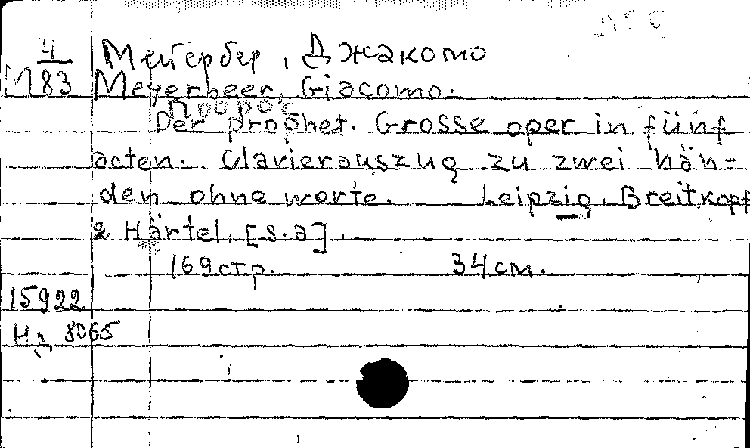 4 Мейербер, Джакомо
М83 Meyerbeer, Giacomo.
Пророк
Der prophet. Grosse oper in fünf
acten. Clavierauszug zu zwei hän-
den ohne worte. Leipzig, Breitkopf
& Härtel, [s.a].
169 стр. 34 cm.
15922
Нд 8065